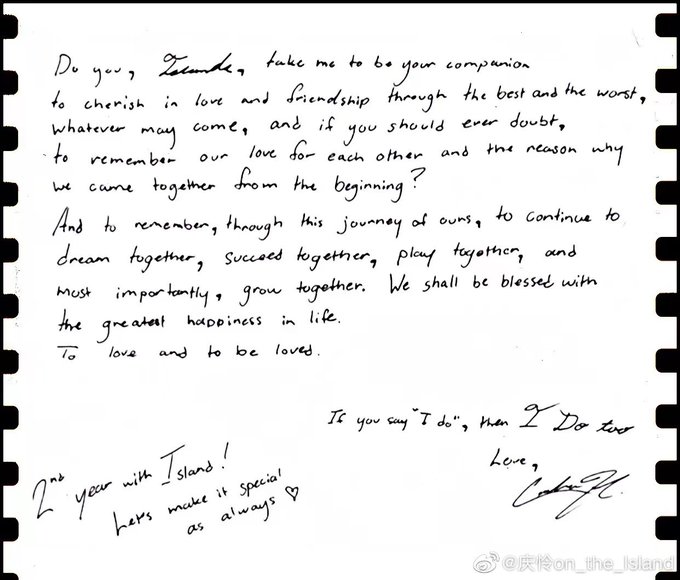 Do you, Islands, take me to be your companion
to cherish in love and friendship through the best and the worst,
whatever may come, and if you should ever doubt,
to remember our love for each other and the reason why
we came together from the beginning?
And to remember, through this journey of ours, to continue to
dream together, succeed together, play together, and
most importantly, grow together. We shall be blessed with
the greatest happiness in life.
To love and to be loved.
If you say "I do", then I Do too
Love,
2nd year with Island!
Let's make it special
as always ♡
@庆怜on_the_Island